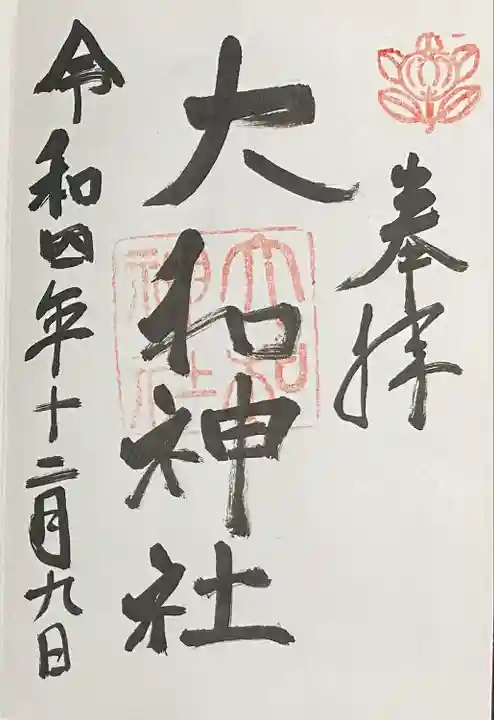 奉拝
大和神社
大和
神社
令和四年十二月九日